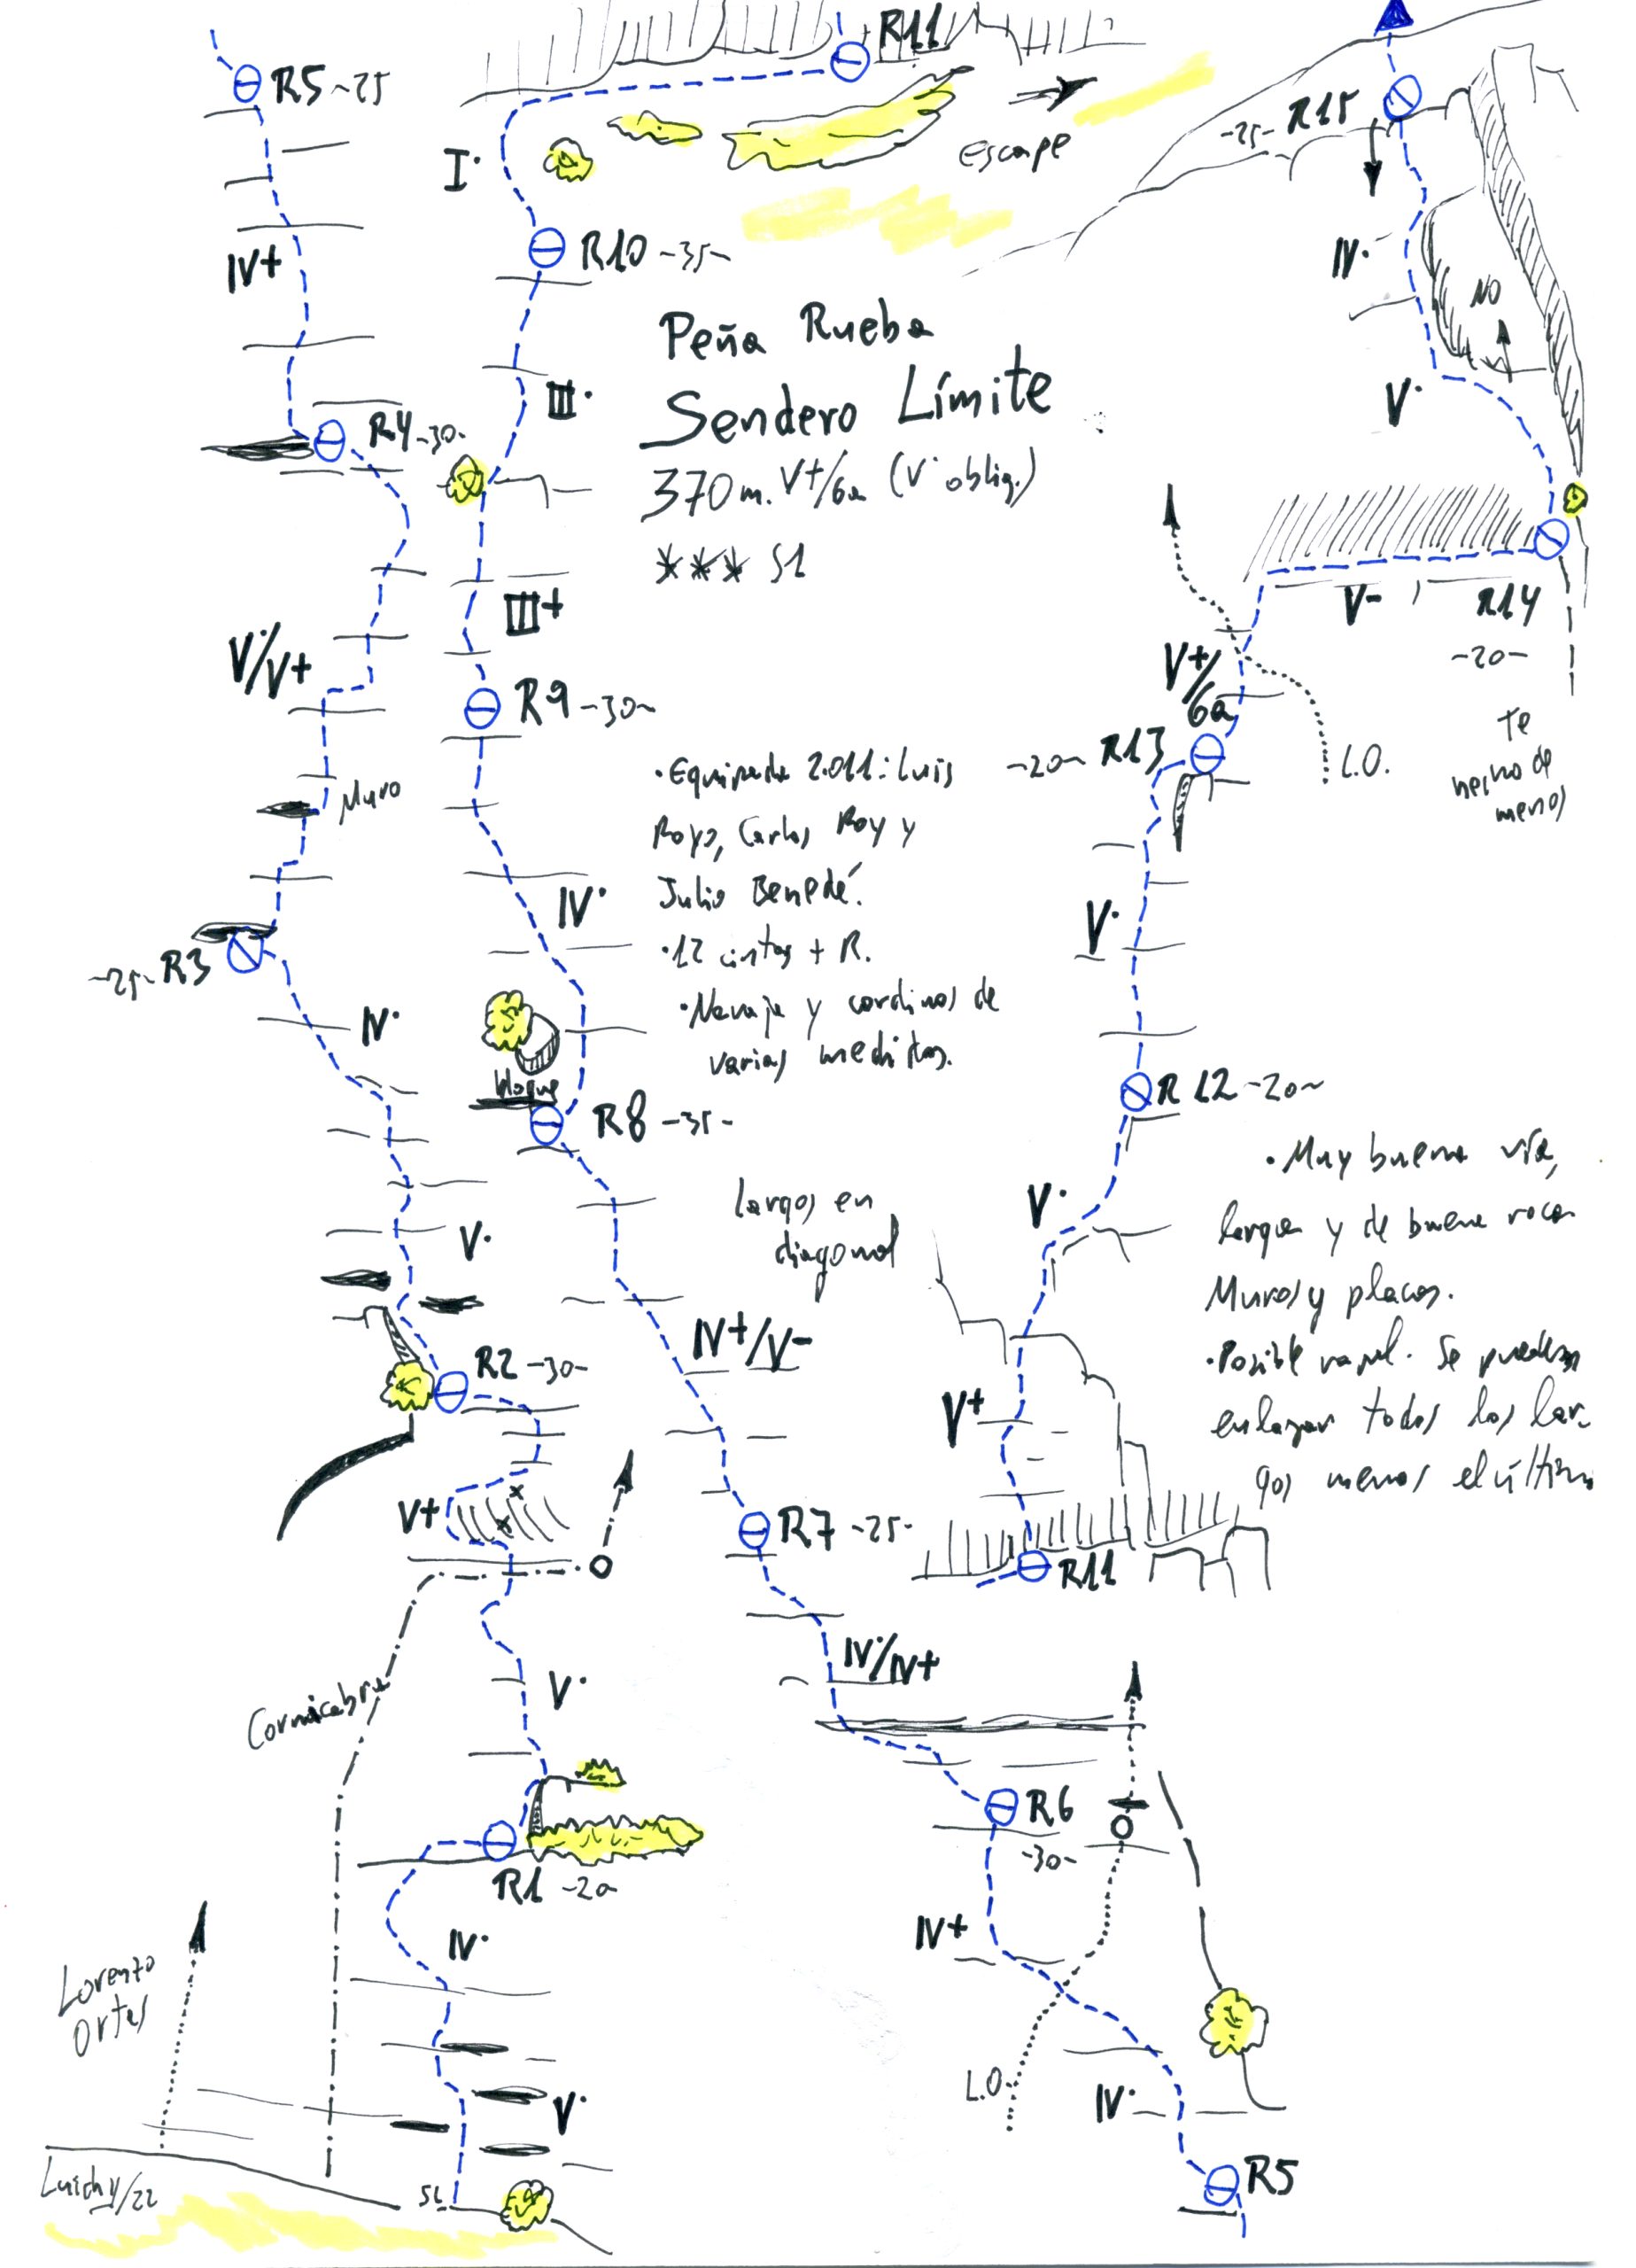 R11
R5 ~25
I·
Escape
-25- R15
IV+
R10 -35-
IV·
NO
Peña Rueba
Sendero Límite
370 m. V+/6a (V· oblig.)
*** S1
III·
R4 -30-
V·
III+
V·/V+
V-
R14
-20-
V+/
6a
R9 -30-
Muro
-20- R13
L.O.
te
hecho de
menos
· Equipada 2.011: Luis
Royo, Carlos Roy y
Julio Benedé.
· 12 cintas + R.
· Navaja y cordinos de
varias medidas.
IV·
V·
-25- R3
IV·
bloque
R8 -35-
R12 -20-
V·
Largos en
diagonal
V·
· Muy buena vía,
larga y de buena roca.
Muros y placas.
· Posible rapel. Se pueden
enlazar todos los lar-
gos menos el último
R2 -30-
IV+/V-
V+
V+
R7 -25-
R11
V·
IV·/IV+
Cornicabra
R6
-30-
R1 -20
IV·
IV+
Lorenzo
Ortas
L.O.
V·
IV·
Luichy/22
SL
R5